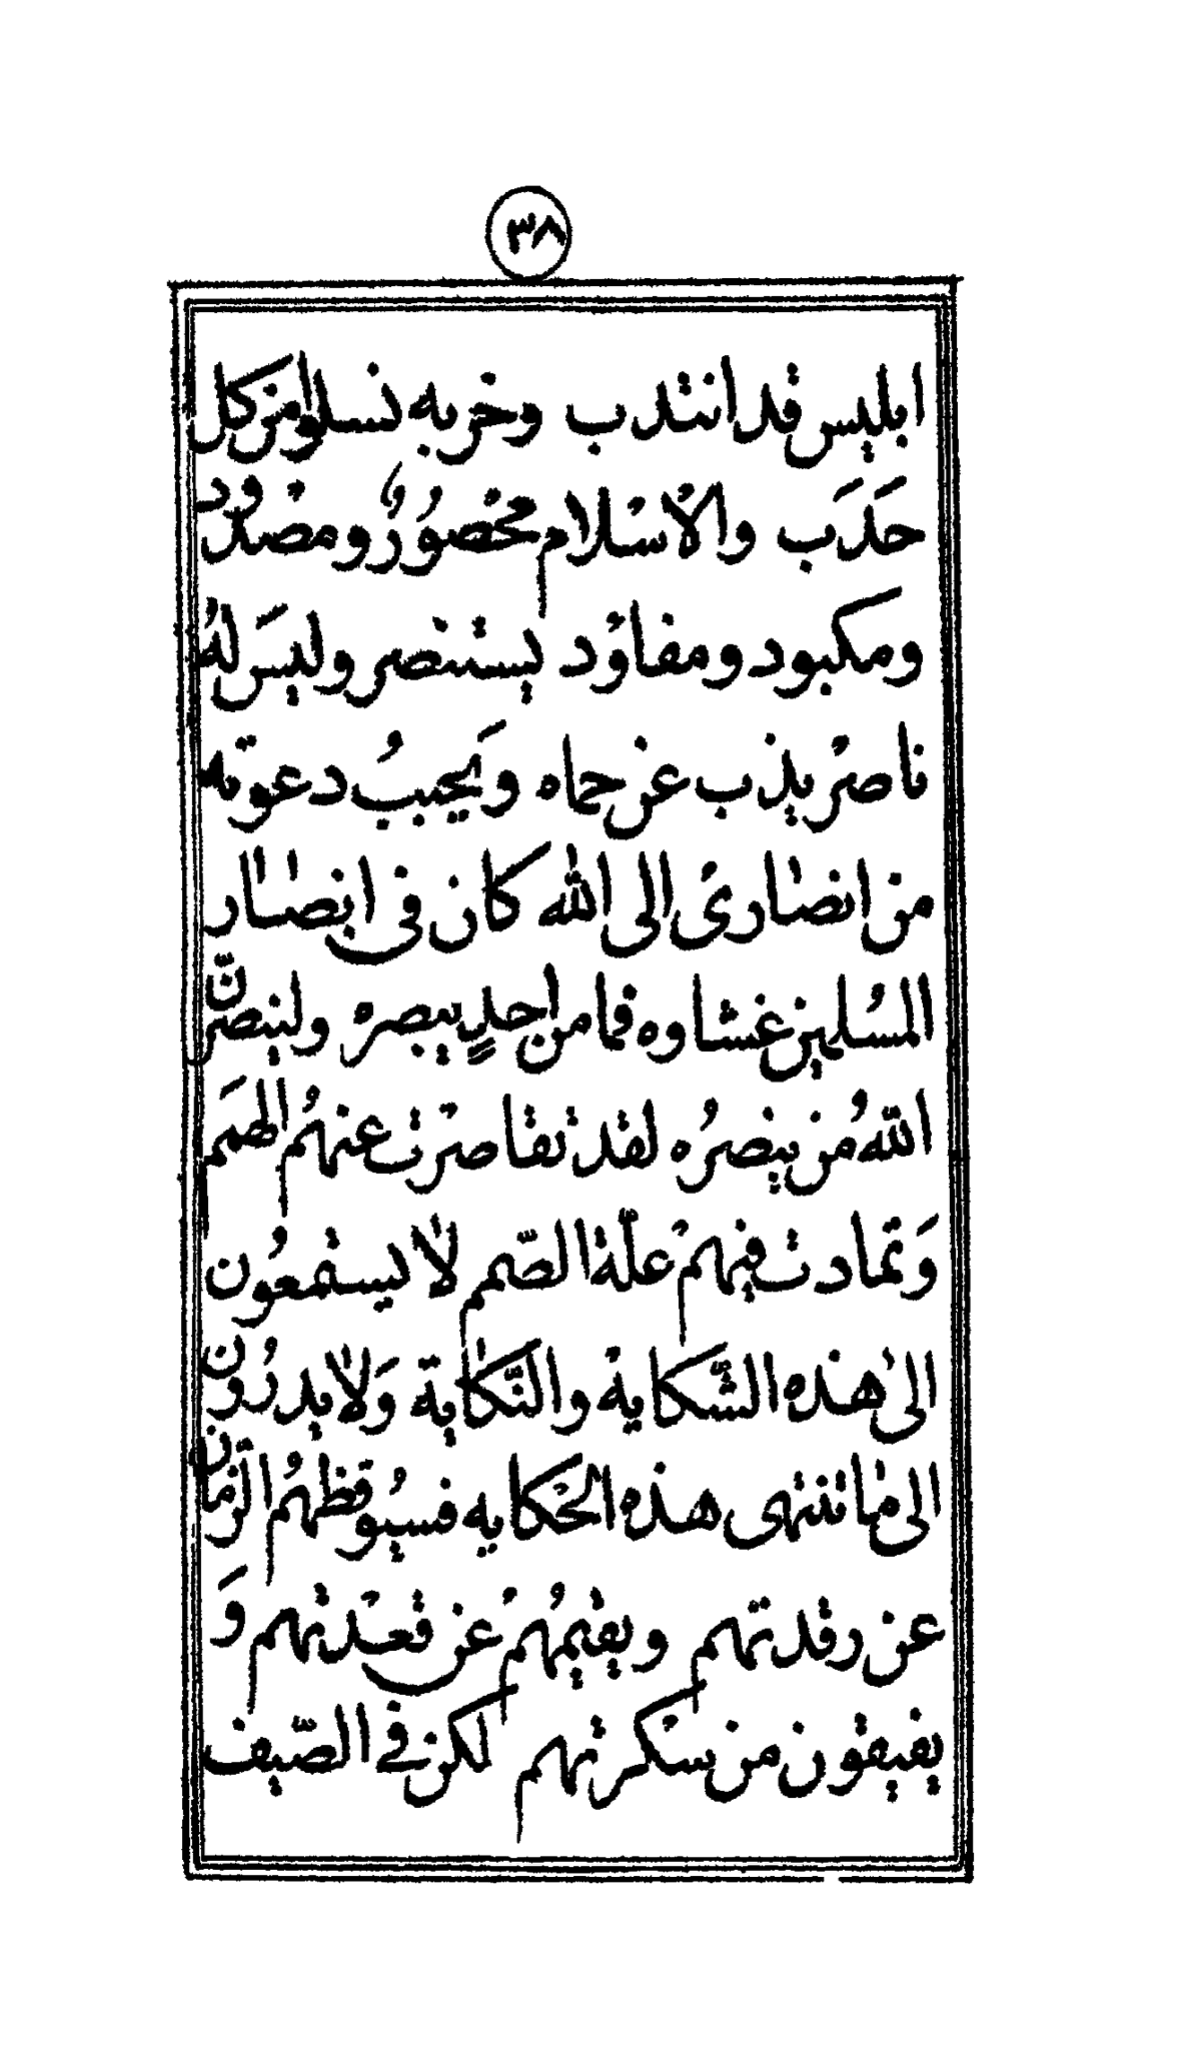 ٣٨
ابليس قد انتدب وحزبه نسلوا من كل
حَدَب والاْسْلام محْصُوْرٌ ومصْدود
ومكبود ومفاؤد يستنصر وليسَ لهُ
ناصرْ يذب عن حماه وَيَجيبُ دعوته
من انصٰارىْ الى الله كان فى ابصٰار
المسُلمين غشاوه فما من احدٍ يبصره ولينصرنّ
اللهُ من ينصرُه لقد تقاصرْت عنهُم الهمَم
وَتمادت فيهمْ علّة الصّمم لاٰ يستمعُون
الىٰ هٰذه الشّكاية والنّكاية وَلاٰ يدرُون
الى مٰا تنتهى هذه الحْكايه فسيُوقظهُم الزّمان
عن رقدتهم ويقيمُهمْ عن قعْدتهم وَ
يفيقون من سكْرتهم لكن في الصّيف